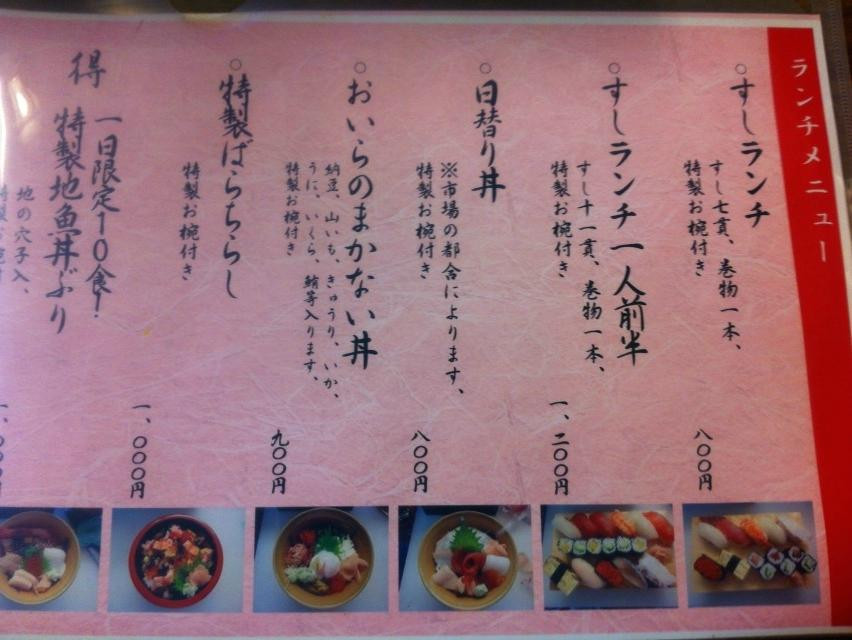 ランチメニュー
○すしランチ
すし七貫、巻物一本、
特製お椀付き
八〇〇円
○すしランチ一人前半
すし十一貫、巻物一本、
特製お椀付き
一、二〇〇円
○日替り丼
※市場の都合によります、
特製お椀付き
八〇〇円
○おいらのまかない丼
納豆、山いも、きゅうり、いか、
うに、いくら、鮪等入ります、
特製お椀付き
九〇〇円
○特製ばらちらし
特製お椀付き
一、〇〇〇円
得 一日限定10食!
特製地魚丼ぶり
地の穴子入、